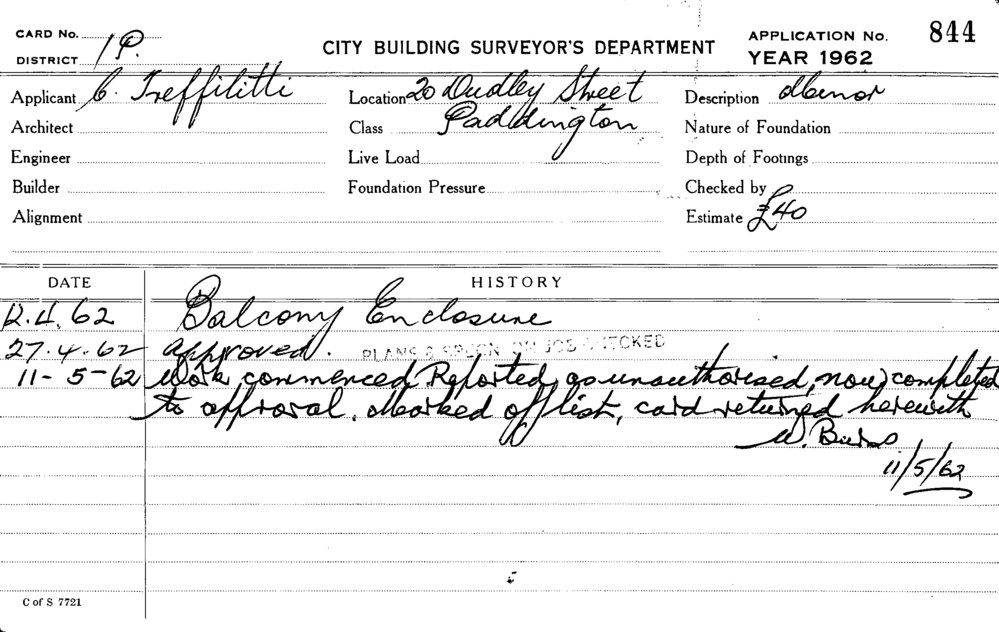 CARD No.
DISTRICT 1P.
CITY BUILDING SURVEYOR'S DEPARTMENT
APPLICATION No. 844
YEAR 1962
Applicant C. Treffiletti Location 20 Dudley Street Description Minor
Architect Class Paddington Nature of Foundation
Engineer Live Load Depth of Footings
Builder Foundation Pressure Checked by
Alignment Estimate £40
DATE HISTORY
12.4.62 Balcony Enclosure
27.4.62 approved. PLANS & SPECN ON JOB CHECKED
11-5-62 Work commenced Reported as unauthorised, now completed
to approval. Marked off list, card returned herewith
11/5/62
C of S 7721